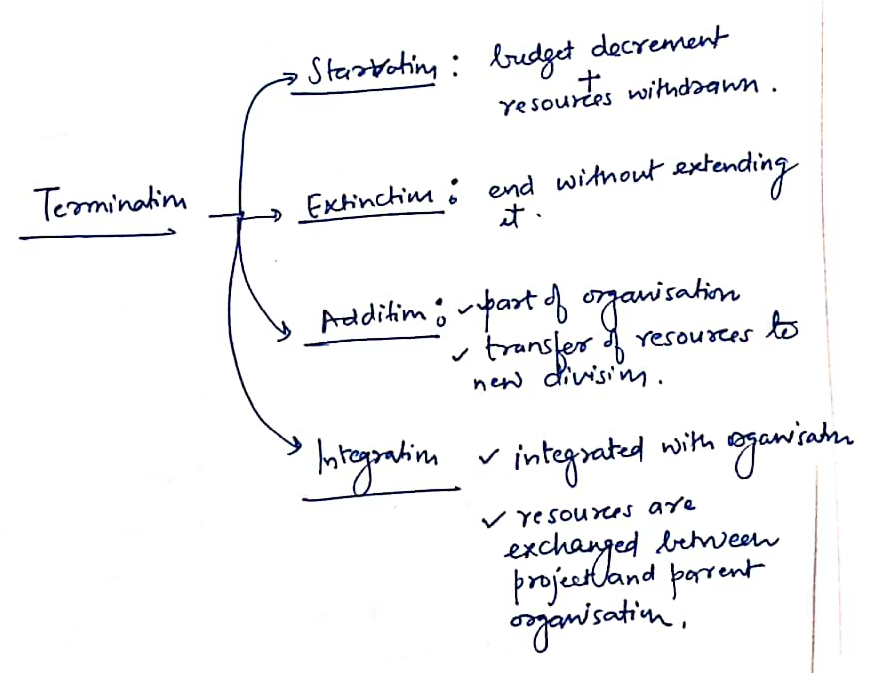 Starvation : budget decrement
+
resources withdrawn.
Termination
Extinction : end without extending
it.
Addition : ✓ part of organisation
✓ transfer of resources to
new division.
Integration ✓ integrated with organisation
✓ resources are
exchanged between
project and parent
organisation.